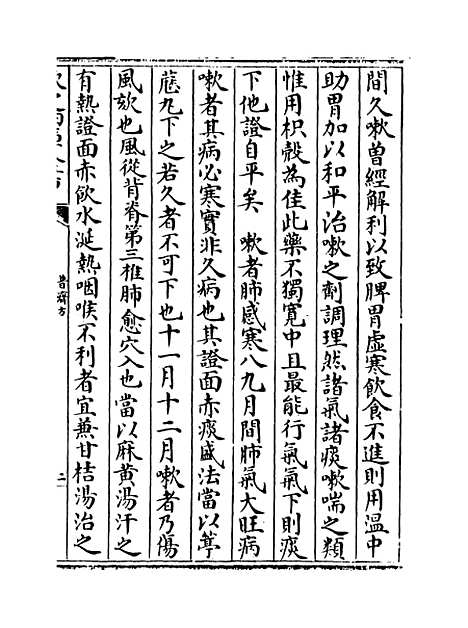 間久嗽曽經解利以致脾胃虚寒飲食不進則用溫中
助胃加以和平治嗽之劑調理然諸氣諸痰嗽喘之類
惟用枳殼為佳此藥不獨寛中且最能行氣氣下則痰
下他證自平矣 嗽者肺感寒八九月間肺氣大旺病
嗽者其病必寒實非久病也其證面赤痰盛法當以葶
藶丸下之若久者不可下也十一月十二月嗽者乃傷
風欬也風從背脊第三椎肺愈穴入也當以麻黄湯汗之
有熱證面赤飲水涎熱咽喉不利者宜兼甘桔湯治之
普濟方
二